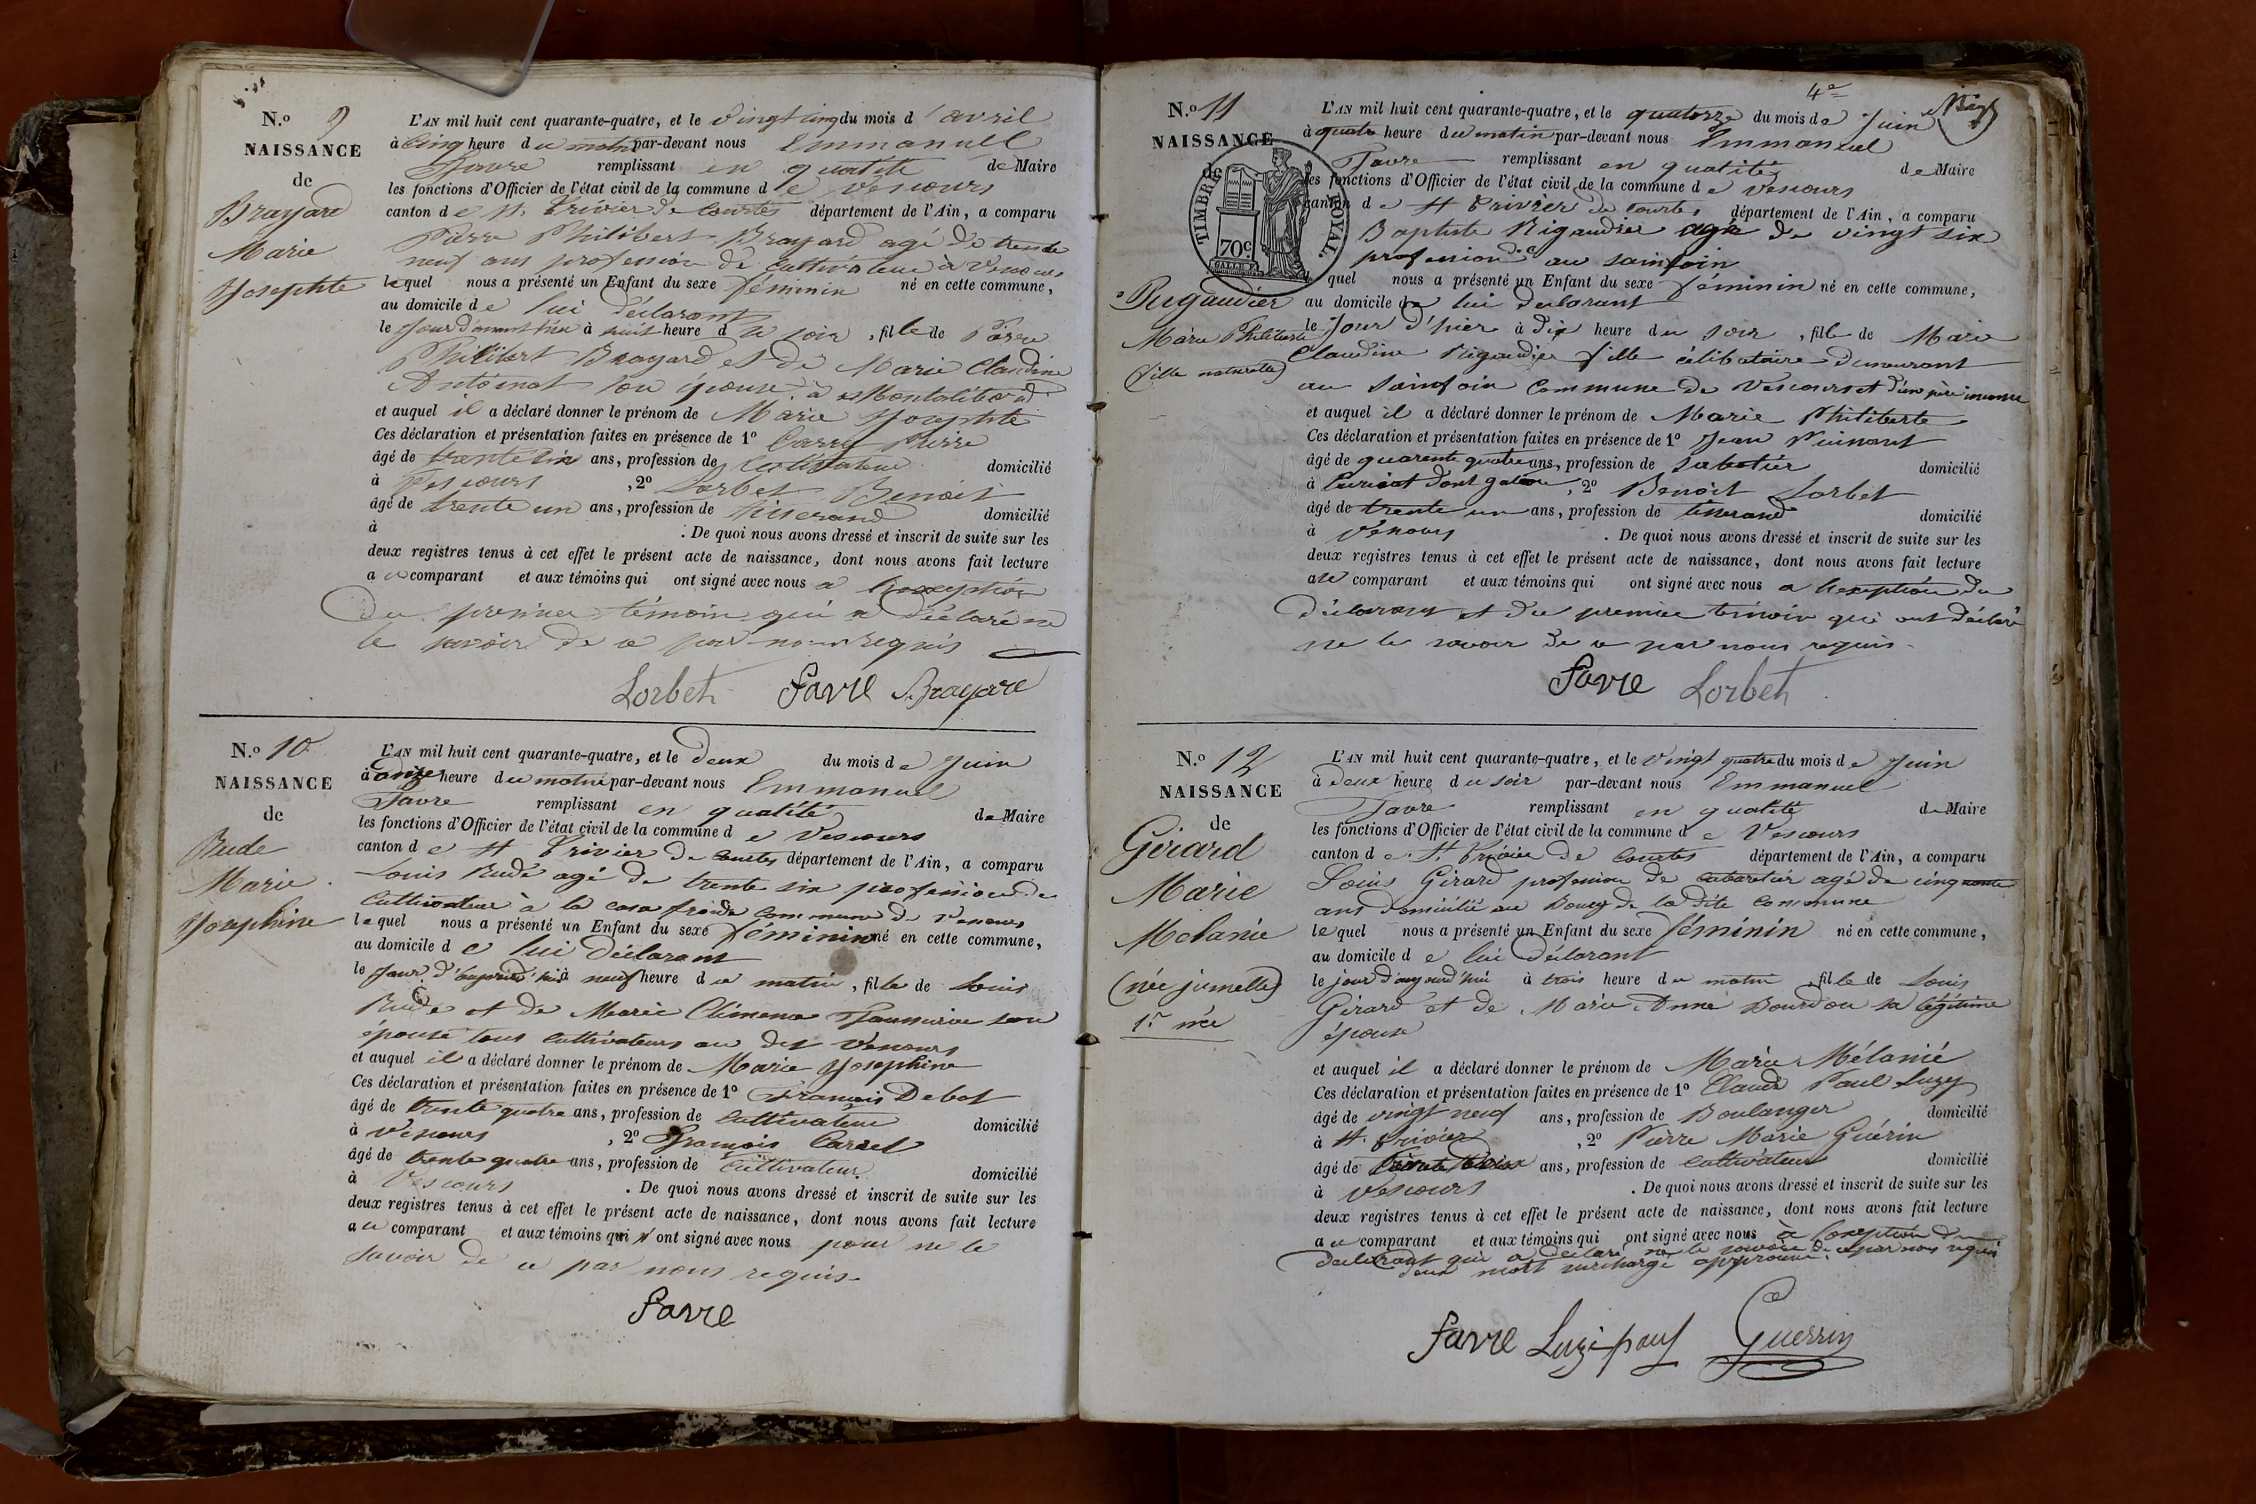 N.o 9
NAISSANCE
de
Brayard
Marie
Josephte
L'AN mil huit cent quarante-quatre, et le vingt cinq du mois d'avril
à cinq heure du matin par-devant nous Emmanuel
Favre remplissant en qualité de Maire
les fonctions d'Officier de l'état civil de la commune de Vescours
canton de St. Trivier de Courtes département de l'Ain, a comparu
Pierre Philibert Brayard agé de trente
neuf ans profession de cultivateur à Vescours
lequel nous a présenté un Enfant du sexe féminin né en cette commune,
au domicile de lui déclarant
le jour d'avant hier à huit heure du soir, fille de Pierre
Philibert Brayard et de Marie Claudine
Antoinat son épouse à
et auquel il a déclaré donner le prénom de Marie Josephte
Ces déclaration et présentation faites en présence de 1o Carry Pierre
âgé de trente six ans, profession de cultivateur domicilié
à Vescours, 2o Lorbet Benoit
âgé de trente un ans, profession de tisserand domicilié
à . De quoi nous avons dressé et inscrit de suite sur les
deux registres tenus à cet effet le présent acte de naissance, dont nous avons fait lecture
au comparant et aux témoins qui ont signé avec nous a l'exception
du premier témoin qui a déclaré ne
le savoir de ce par nous requis
Lorbet Favre Brayard
N.o 10
NAISSANCE
de
Rude
Marie
Josephine
L'AN mil huit cent quarante-quatre, et le deux du mois de Juin
à onze heure du matin par-devant nous Emmanuel
Favre remplissant en qualité de Maire
les fonctions d'Officier de l'état civil de la commune de Vescours
canton de St Trivier de Courtes département de l'Ain, a comparu
Louis Rude agé de trente six profession de
cultivateur à la casa froide commune de Vescours
lequel nous a présenté un Enfant du sexe féminin né en cette commune,
au domicile de lui déclarant
le jour d'aujourd'hui à neuf heure du matin, fille de Louis
Rude et de Marie Climene son
épouse tous cultivateurs au dit Vescours
et auquel il a déclaré donner le prénom de Marie Josephine
Ces déclaration et présentation faites en présence de 1o François Debot
âgé de trente quatre ans, profession de cultivateur domicilié
à Vescours, 2o François Carrel
âgé de trente quatre ans, profession de cultivateur domicilié
à Vescours . De quoi nous avons dressé et inscrit de suite sur les
deux registres tenus à cet effet le présent acte de naissance, dont nous avons fait lecture
au comparant et aux témoins qui n'ont signé avec nous pour ne le
savoir de ce par nous requis
Favre
4e
N.o 11
NAISSANCE
de
TIMBRE ROYAL.
70c.
Rigaudier
Marie Philiberte
(fille naturelle)
L'AN mil huit cent quarante-quatre, et le quatorze du mois de Juin
à quatre heure du matin par-devant nous Emmanuel
Favre remplissant en qualité de Maire
les fonctions d'Officier de l'état civil de la commune de Vescours
canton de St Trivier de Courtes département de l'Ain, a comparu
Baptiste Rigaudier agé de vingt six
profession d au sainfoin
quel nous a présenté un Enfant du sexe féminin né en cette commune,
au domicile de lui déclarant
le jour d'hier à dix heure du soir, fille de Marie
Claudine Rigaudier fille célibataire demeurant
au sainfoin commune de Vescours et d'un père inconnu
et auquel il a déclaré donner le prénom de Marie Philiberte
Ces déclaration et présentation faites en présence de 1o Jean
âgé de quarante quatre ans, profession de sabotier domicilié
à Curciat dont galon, 2o Benoit Lorbet
âgé de trente un ans, profession de tisserand domicilié
à Vescours . De quoi nous avons dressé et inscrit de suite sur les
deux registres tenus à cet effet le présent acte de naissance, dont nous avons fait lecture
au comparant et aux témoins qui ont signé avec nous a l'exception du
déclarant et du premier témoin qui ont déclaré
ne le savoir de ce par nous requis
Favre Lorbet
N.o 12
NAISSANCE
de
Gérard
Marie
Mélanie
(née jumelle)
1re née
L'AN mil huit cent quarante-quatre, et le vingt quatre du mois de Juin
à deux heure du soir par-devant nous Emmanuel
Favre remplissant en qualité de Maire
les fonctions d'Officier de l'état civil de la commune de Vescours
canton de St. Trivier de Courtes département de l'Ain, a comparu
Louis Girard profession de cabaretier agé de cinquante
ans domicilié au Bourg de la dite commune
lequel nous a présenté un Enfant du sexe féminin né en cette commune,
au domicile de lui déclarant
le jour d'aujourd'hui à trois heure du matin, fille de Louis
Girard et de Marie Anne Bourdon sa légitime
épouse
et auquel il a déclaré donner le prénom de Marie Mélanie
Ces déclaration et présentation faites en présence de 1o Claude Paul Luzy
âgé de vingt neuf ans, profession de Boulanger domicilié
à St. Trivier, 2o Pierre Marie Guérin
âgé de trente trois ans, profession de cultivateur domicilié
à Vescours . De quoi nous avons dressé et inscrit de suite sur les
deux registres tenus à cet effet le présent acte de naissance, dont nous avons fait lecture
au comparant et aux témoins qui ont signé avec nous à l'exception du
déclarant qui a déclaré ne le savoir de ce par nous requis
deux mots surchargé approuvé
Favre Luzi paul Guerrin